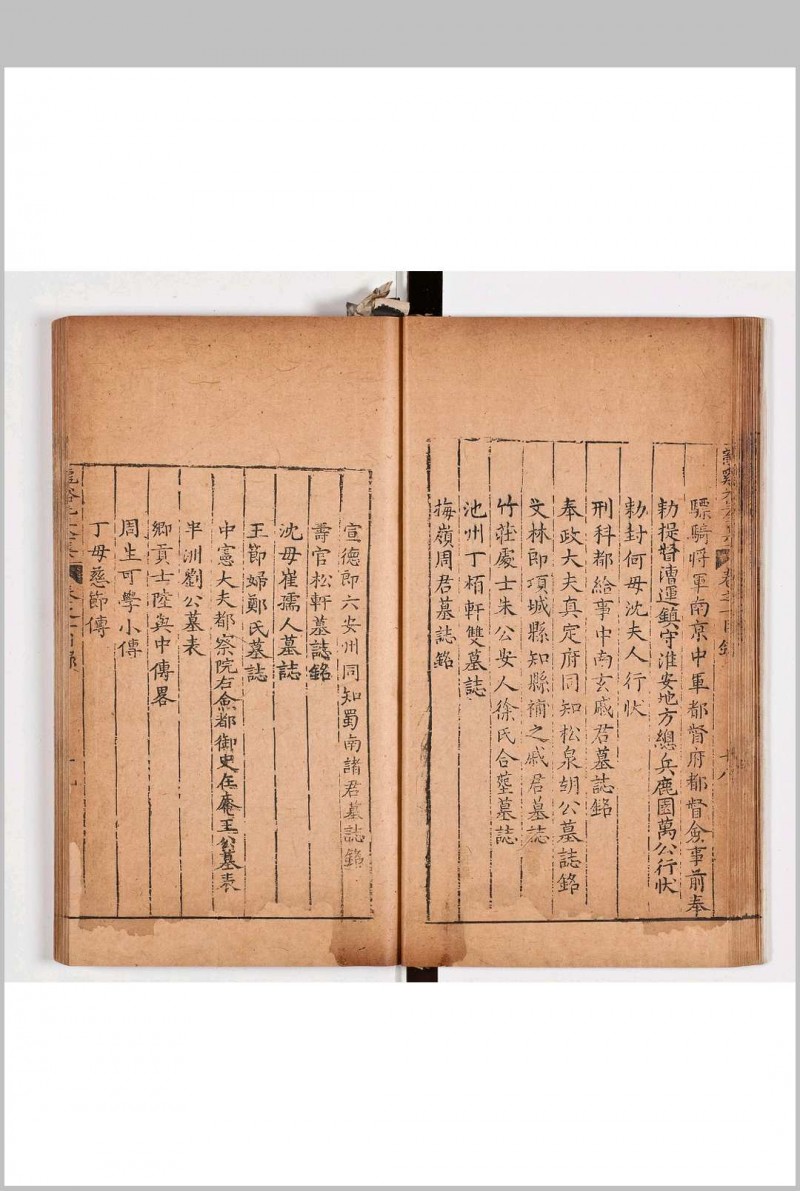 驃騎將軍南京中軍都督府都督僉事前奉
勅提督漕運鎮守淮安地方總兵鹿園萬公行狀
勅封何母沈夫人行狀
刑科都給事中南玄戚君墓誌銘
奉政大夫真定府同知松泉胡公墓誌銘
文林郎項城縣知縣補之戚君墓誌
竹莊處士朱公安人徐氏合塟墓誌
池州丁栢軒雙墓誌
梅嶺周君墓誌銘
宣德郎六安州同知蜀南諸君墓誌銘
壽官松軒墓誌銘
沈母崔孺人墓誌
王節婦鄭氏墓誌
中憲大夫都察院右僉都御史在庵王公墓表
半洲劉公墓表
鄉貢士陸與中傳畧
周生可學小傳
丁母慈節傳